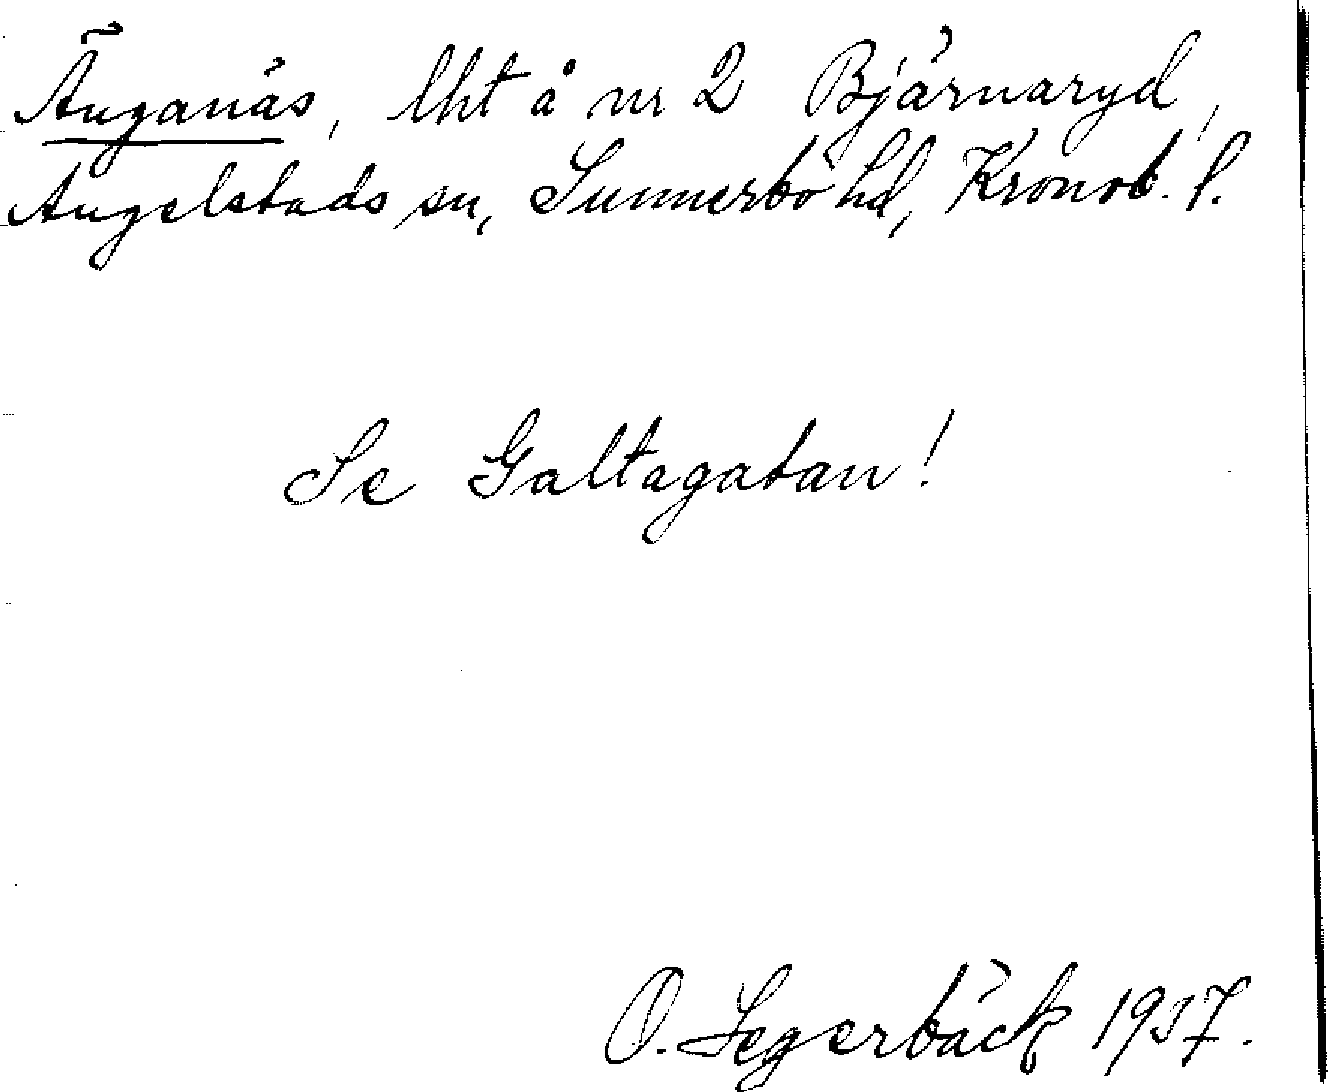 Änganäs, lht å nr 2 Bjärnaryd,
Angelstads sn, Sunnerbo hd, Kronob. l.
Se Galtagatan!
O. Segerbäck 1937.